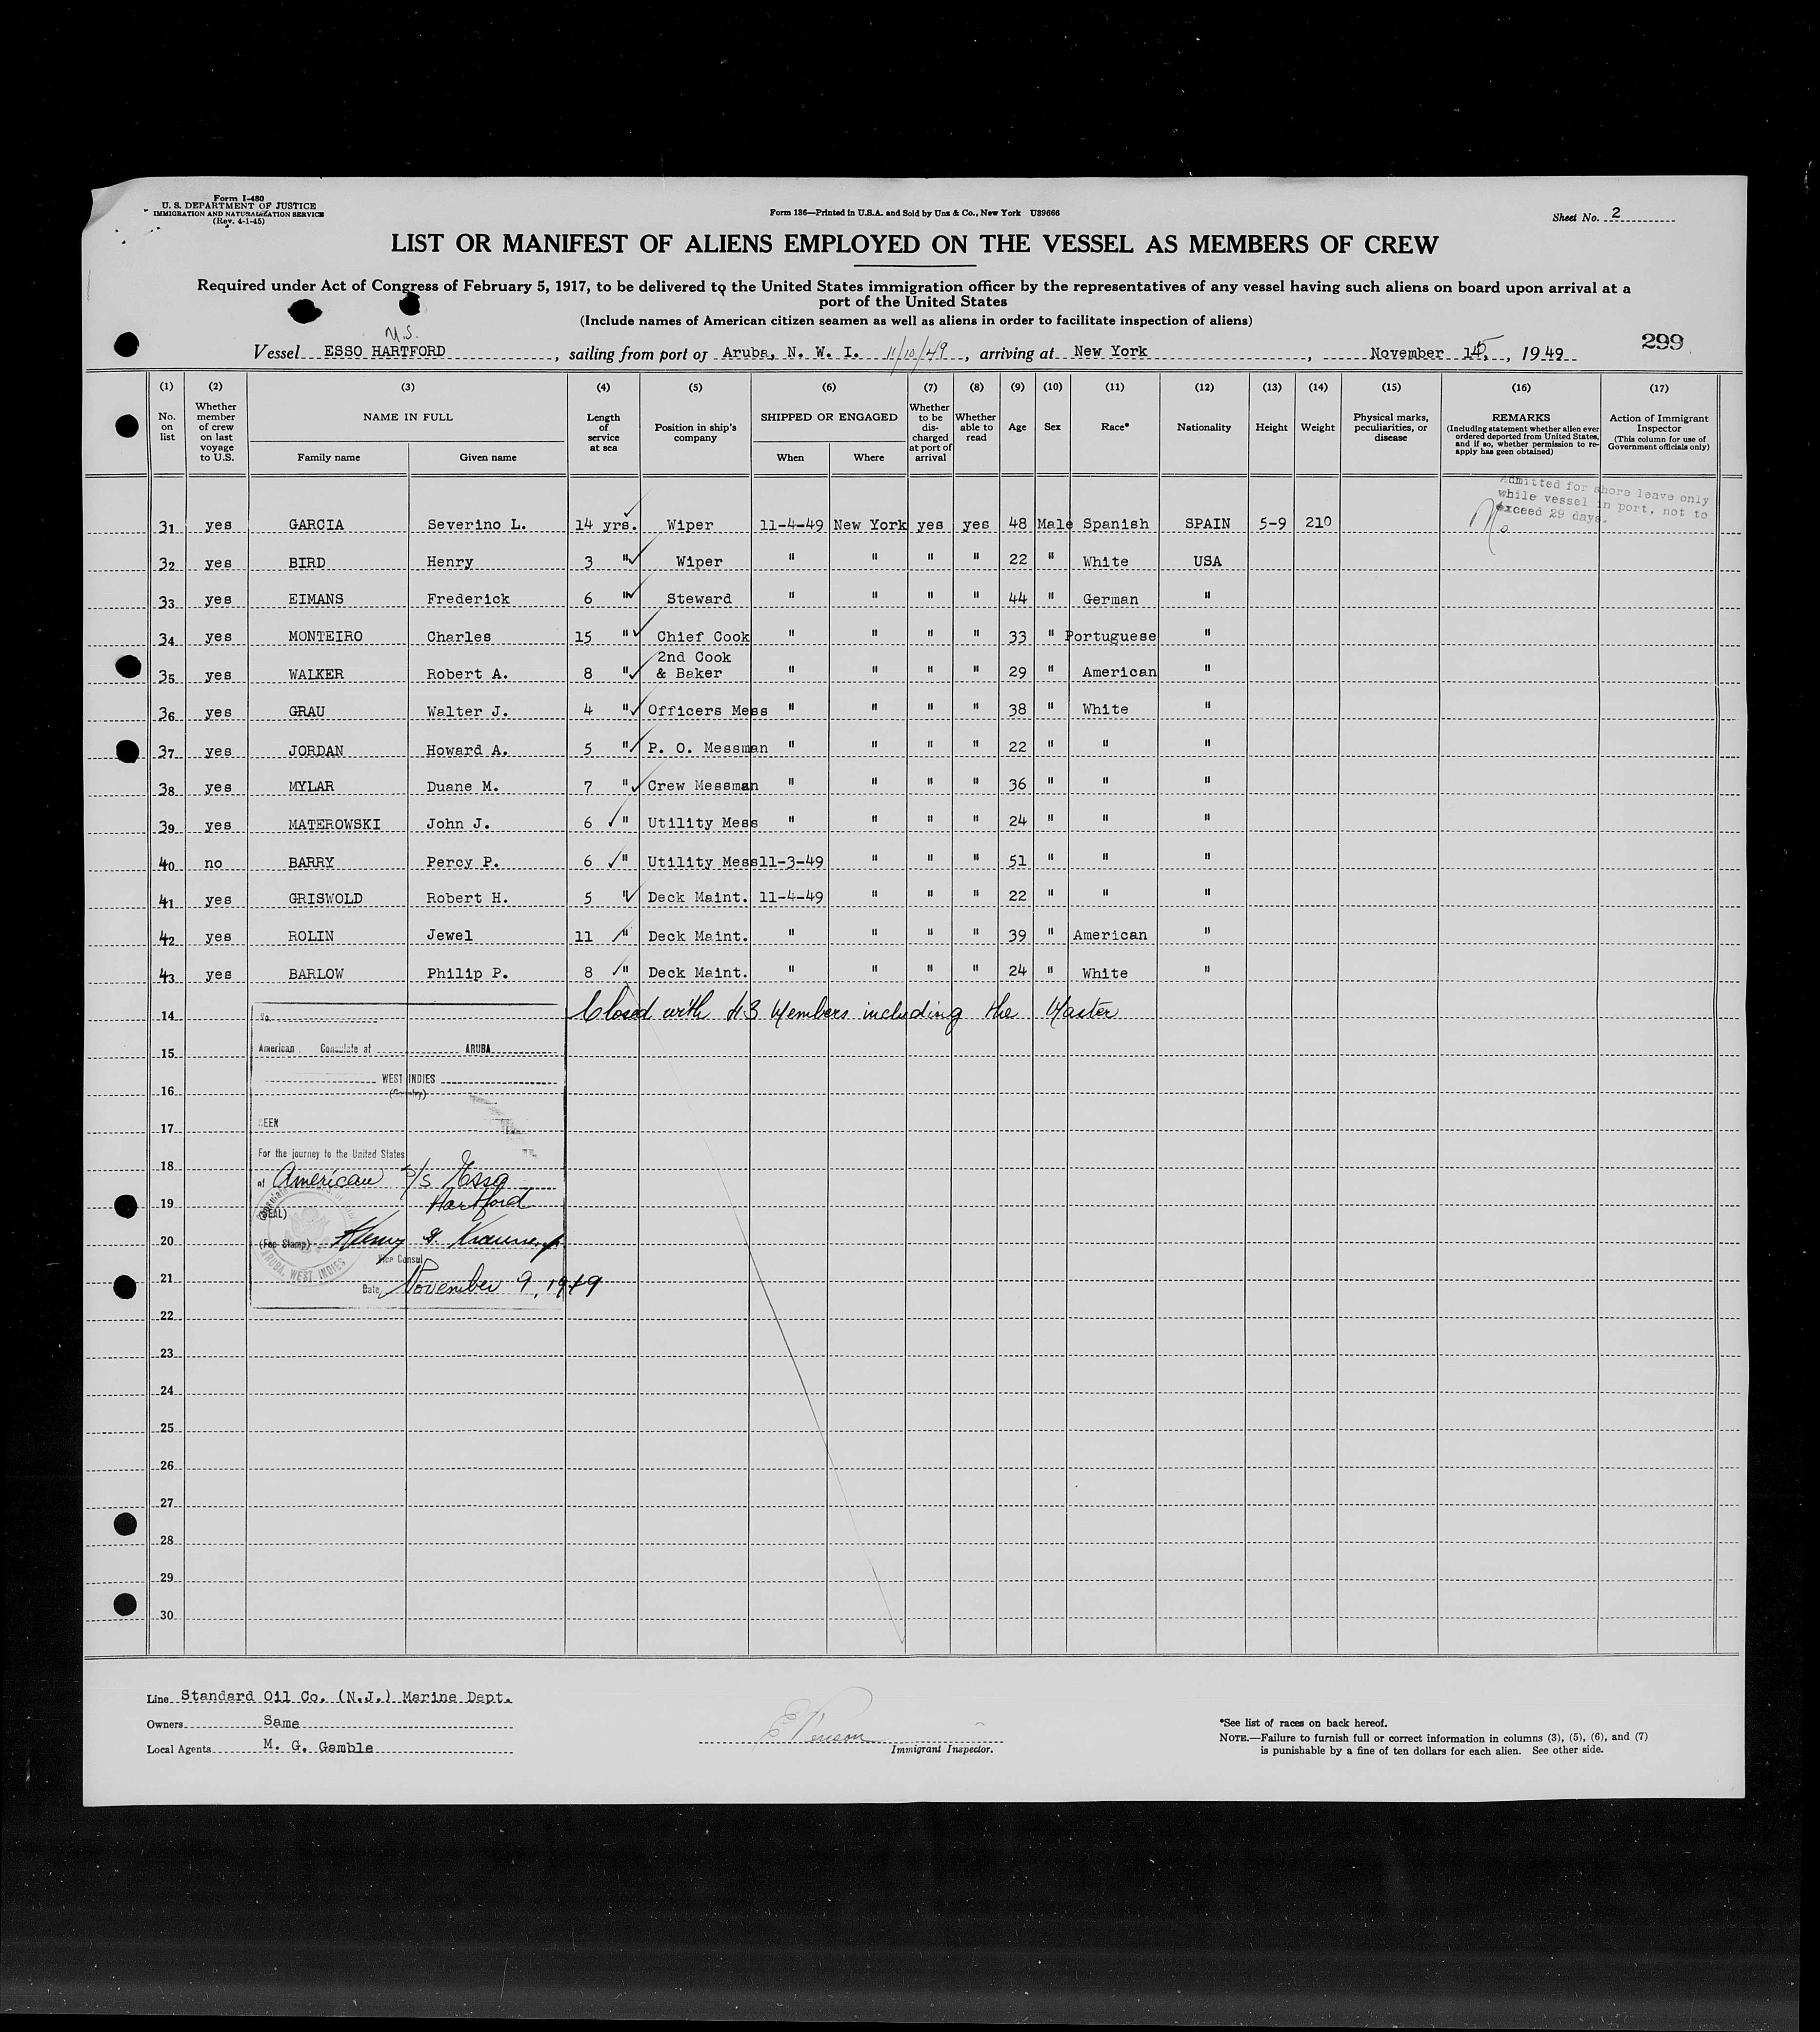 Form I-480
U. S. DEPARTMENT OF JUSTICE
IMMIGRATION AND NATURALIZATION SERVICE
(Rev. 4-1-45)
Form 136—Printed in U.S.A. and Sold by Unz & Co., New York U39666
Sheet No. 2
LIST OR MANIFEST OF ALIENS EMPLOYED ON THE VESSEL AS MEMBERS OF CREW
Required under Act of Congress of February 5, 1917, to be delivered to the United States immigration officer by the representatives of any vessel having such aliens on board upon arrival at a
port of the United States
(Include names of American citizen seamen as well as aliens in order to facilitate inspection of aliens)
U.S.
299
Vessel ESSO HARTFORD, sailing from port of Aruba, N. W. I. 11/10/49, arriving at New York, November 15, 1949
(1) (2) (3) (4) (5) (6) (7) (8) (9) (10) (11) (12) (13) (14) (15) (16) (17)
No. on list
Whether member of crew on last voyage to U.S.
NAME IN FULL
Family name Given name
Length of service at sea
Position in ship's company
SHIPPED OR ENGAGED
When Where
Whether to be discharged at port of arrival
Whether able to read
Age
Sex
Race*
Nationality
Height
Weight
Physical marks, peculiarities, or disease
REMARKS
(Including statement whether alien ever ordered deported from United States, and if so, whether permission to re-apply has geen obtained)
Action of Immigrant Inspector
(This column for use of Government officials only)
Admitted for shore leave only
while vessel in port, not to
exceed 29 days.
31 yes GARCIA Severino L. 14 yrs. Wiper 11-4-49 New York yes yes 48 Male Spanish SPAIN 5-9 210 No
32 yes BIRD Henry 3 " Wiper " " " " 22 " White USA
33 yes EIMANS Frederick 6 " Steward " " " " 44 " German "
34 yes MONTEIRO Charles 15 " Chief Cook " " " " 33 " Portuguese "
35 yes WALKER Robert A. 8 " 2nd Cook & Baker " " " " 29 " American "
36 yes GRAU Walter J. 4 " Officers Mess " " " " 38 " White "
37 yes JORDAN Howard A. 5 " P. O. Messman " " " " 22 " " "
38 yes MYLAR Duane M. 7 " Crew Messman " " " " 36 " " "
39 yes MATEROWSKI John J. 6 " Utility Mess " " " " 24 " " "
40 no BARRY Percy P. 6 " Utility Mess 11-3-49 " " " 51 " " "
41 yes GRISWOLD Robert H. 5 " Deck Maint. 11-4-49 " " " 22 " " "
42 yes ROLIN Jewel 11 " Deck Maint. " " " " 39 " American "
43 yes BARLOW Philip P. 8 " Deck Maint. " " " " 24 " White "
14 No. Closed with 43 Members including the Master
15 American Consulate at ARUBA
WEST INDIES
16 (Country)
17 SEEN
For the journey to the United States
18 of American S/S Esso
19 Hartford
(SEAL)
20 (Fee Stamp) Henry
Vice Consul
ARUBA, WEST INDIES
21 Date November 9, 1949
22
23
24
25
26
27
28
29
30
Line Standard Oil Co. (N.J.) Marine Dept.
Owners Same
Local Agents M. G. Gamble
Immigrant Inspector.
*See list of races on back hereof.
NOTE.—Failure to furnish full or correct information in columns (3), (5), (6), and (7)
is punishable by a fine of ten dollars for each alien. See other side.